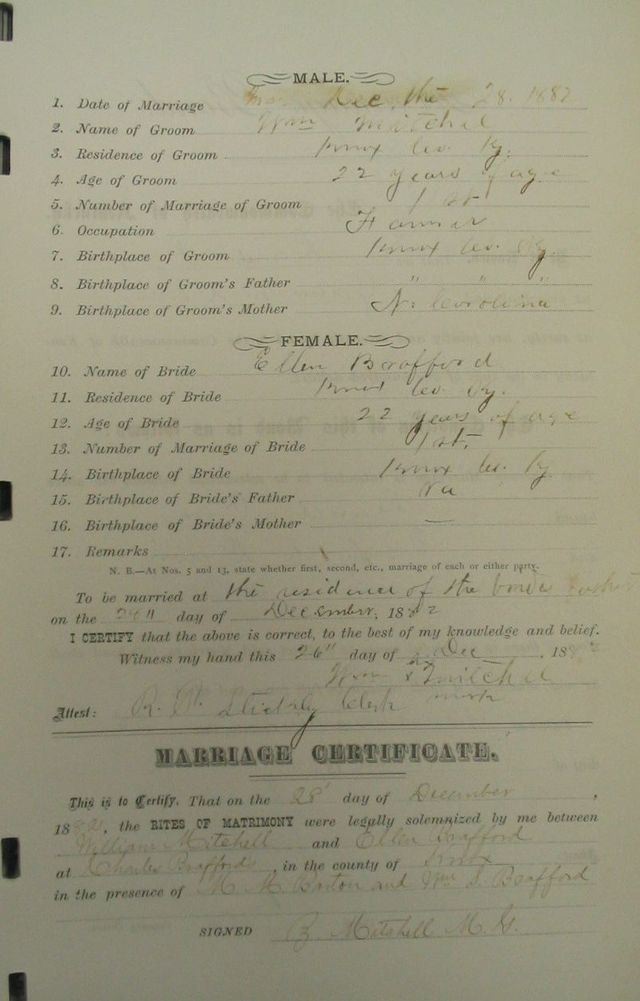 MALE.
1. Date of Marriage Dec the 28. 1882
2. Name of Groom Wm Mitchel
3. Residence of Groom Knox Co. Ky.
4. Age of Groom 22 years of age
5. Number of Marriage of Groom 1 st.
6. Occupation Farmer
7. Birthplace of Groom Knox Co. Ky.
8. Birthplace of Groom's Father " " "
9. Birthplace of Groom's Mother N. Carolina
FEMALE.
10. Name of Bride Ellen Brafford
11. Residence of Bride Knox Co. Ky.
12. Age of Bride 22 years of age
13. Number of Marriage of Bride 1st.
14. Birthplace of Bride Knox Co. Ky
15. Birthplace of Bride's Father Va
16. Birthplace of Bride's Mother —
17. Remarks
N. B.—At Nos. 5 and 13, state whether first, second, etc., marriage of each or either party.
To be married at the residence of the brides father
on the 28" day of December, 1882
I CERTIFY that the above is correct, to the best of my knowledge and belief.
Witness my hand this 26" day of Dec , 188
Wm x Mitchel
mark
Attest: R. Clerk
MARRIAGE CERTIFICATE.
This is to Certify, That on the 28" day of December ,
1882, the RITES OF MATRIMONY were legally solemnized by me between
William Mitchell and Ellen Brafford
at Charles Braffords in the county of Knox
in the presence of M. M. and Wm S. Brafford
SIGNED Z. Mitchell M. G.